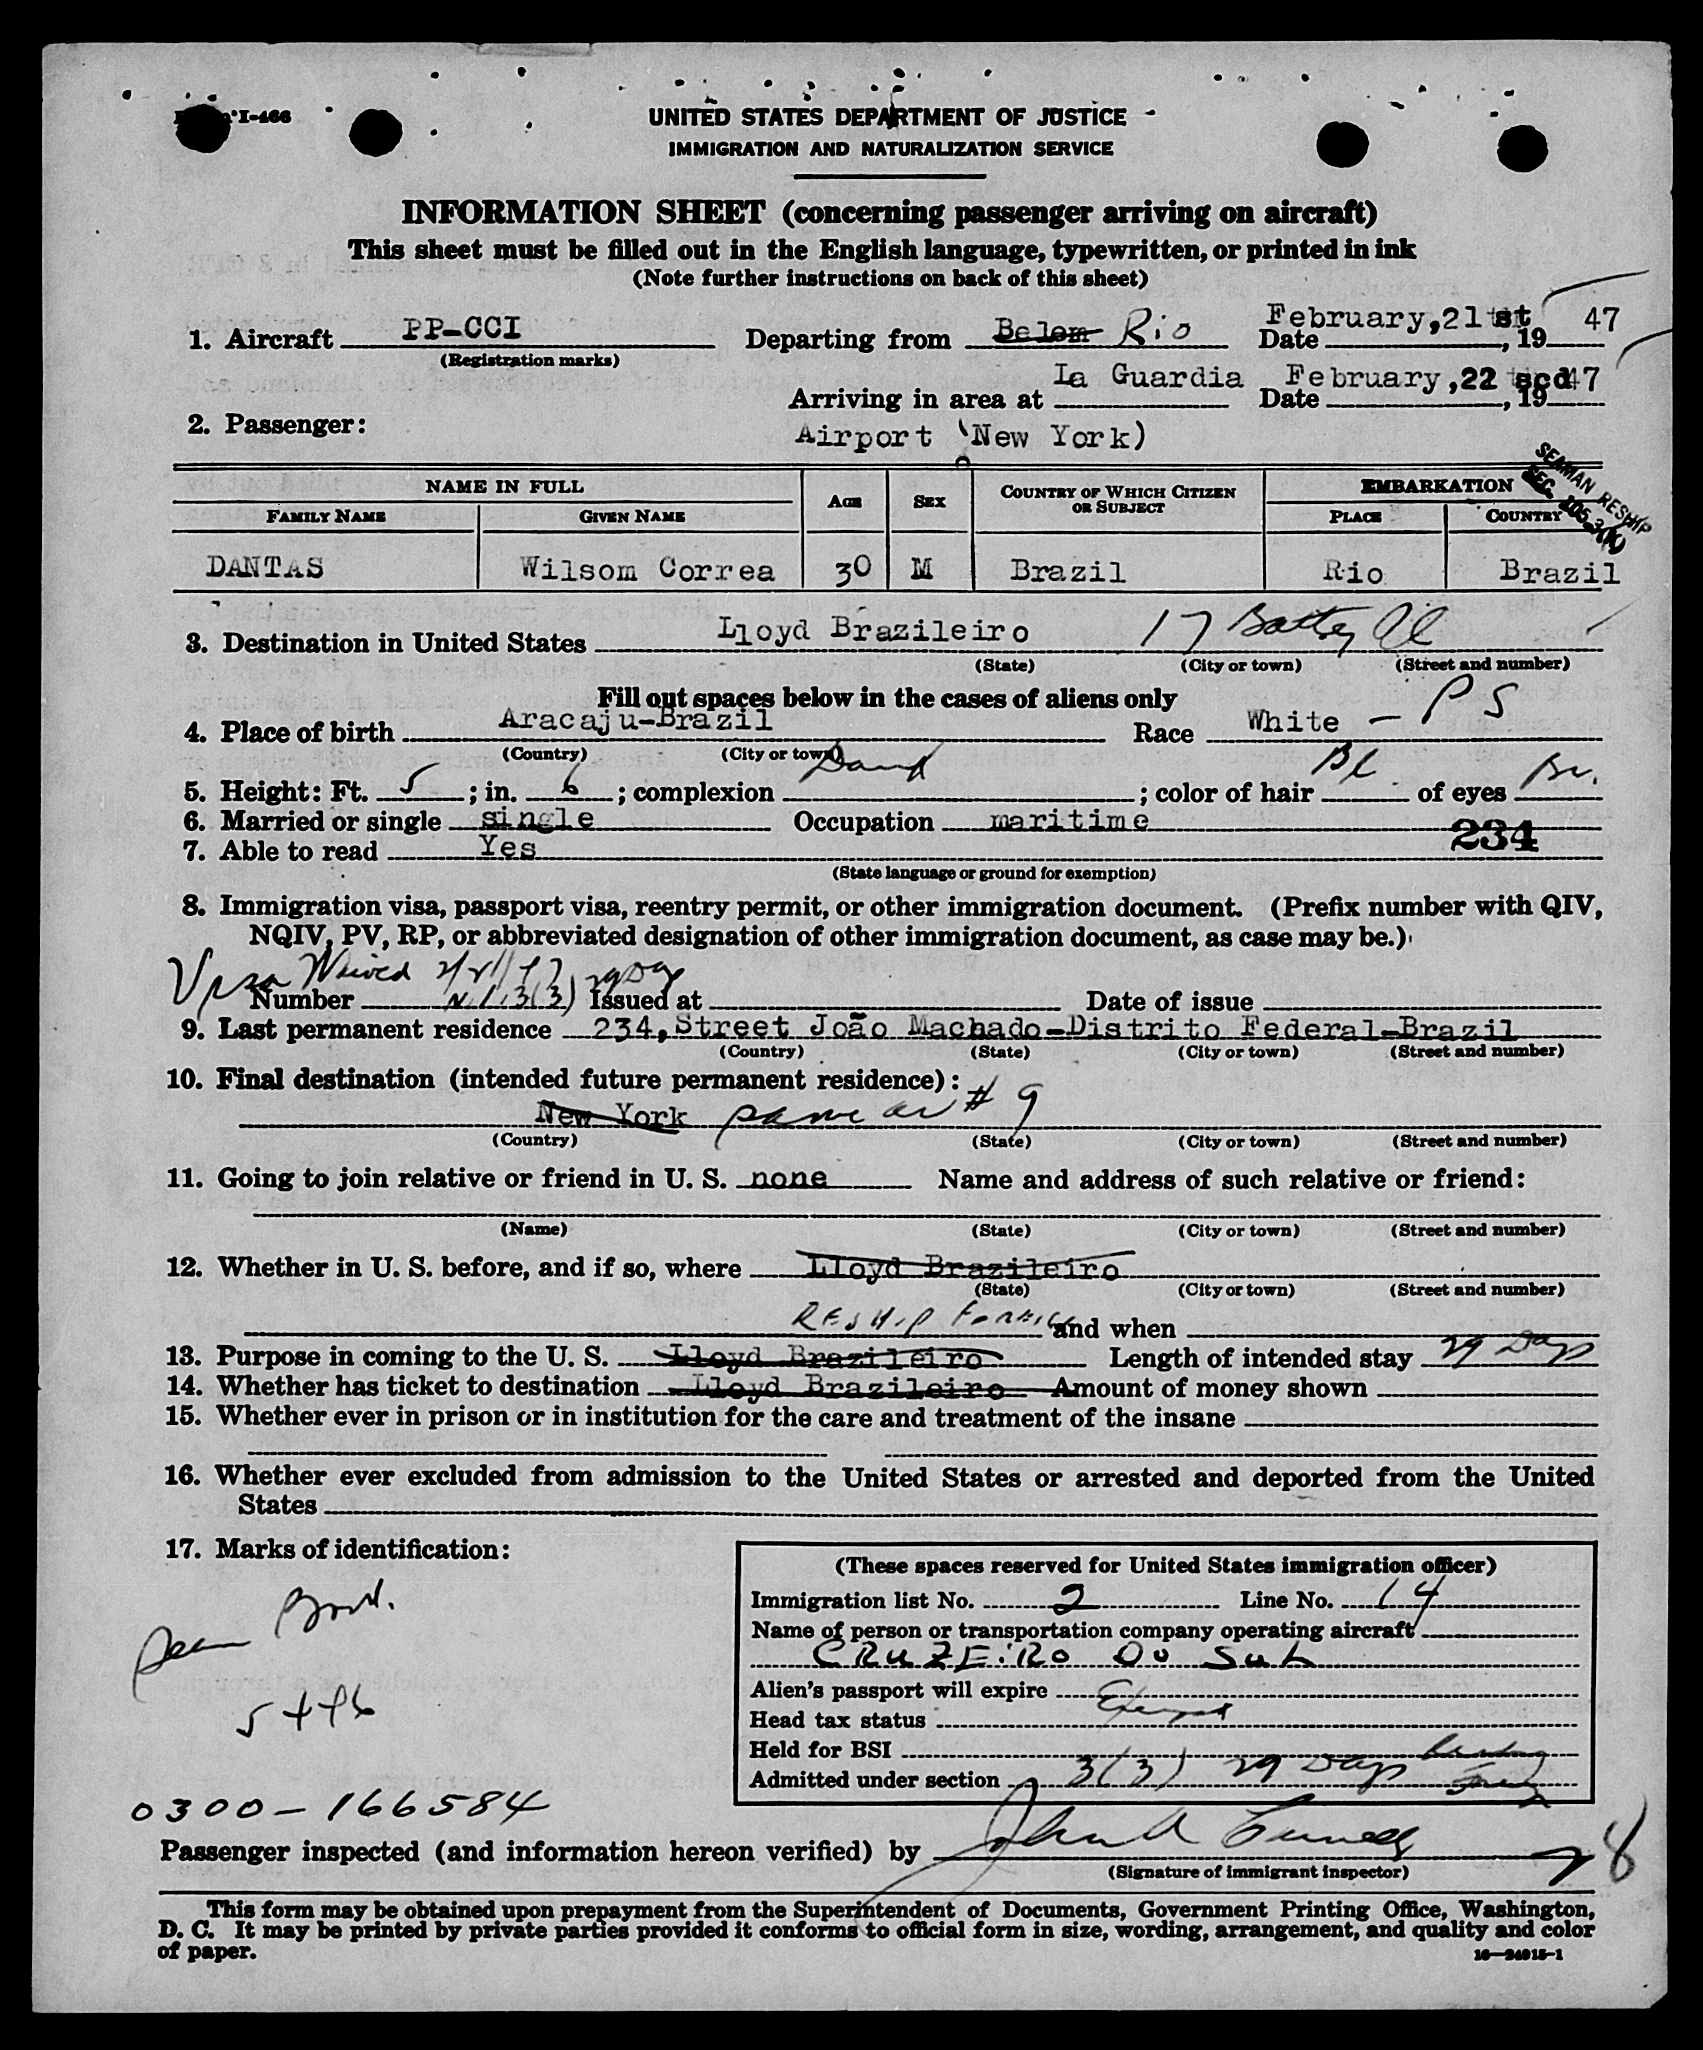 I-466
UNITED STATES DEPARTMENT OF JUSTICE
IMMIGRATION AND NATURALIZATION SERVICE
INFORMATION SHEET (concerning passenger arriving on aircraft)
This sheet must be filled out in the English language, typewritten, or printed in ink
(Note further instructions on back of this sheet)
1. Aircraft PP-CCI Departing from Belem Rio Date February,21st, 1947
(Registration marks)
Arriving in area at La Guardia Date February,22 scd, 1947
2. Passenger: Airport (New York)
SEAMAN RESHIP
SEC.
NAME IN FULL AGE SEX COUNTRY OF WHICH CITIZEN OR SUBJECT EMBARKATION
FAMILY NAME GIVEN NAME PLACE COUNTRY
DANTAS Wilsom Correa 30 M Brazil Rio Brazil
3. Destination in United States Lloyd Brazileiro 17 Battery Pl
(State) (City or town) (Street and number)
Fill out spaces below in the cases of aliens only
4. Place of birth Aracaju-Brazil Race White - PS
(Country) (City or town)
5. Height: Ft. 5; in. 6; complexion Dark; color of hair Bl of eyes Br.
6. Married or single single Occupation maritime
7. Able to read Yes 234
(State language or ground for exemption)
8. Immigration visa, passport visa, reentry permit, or other immigration document. (Prefix number with QIV,
NQIV, PV, RP, or abbreviated designation of other immigration document, as case may be.)
Visa Waived 29 Dys
Number 3(3) Issued at Date of issue
9. Last permanent residence 234, Street João Machado-Distrito Federal-Brazil
(Country) (State) (City or town) (Street and number)
10. Final destination (intended future permanent residence):
New York same as # 9
(Country) (State) (City or town) (Street and number)
11. Going to join relative or friend in U. S. none Name and address of such relative or friend:
(Name) (State) (City or town) (Street and number)
12. Whether in U. S. before, and if so, where Lloyd Brazileiro
(State) (City or town) (Street and number)
RESHIP Foreign and when
13. Purpose in coming to the U. S. Lloyd Brazileiro Length of intended stay 29 Days
14. Whether has ticket to destination Lloyd Brazileiro Amount of money shown
15. Whether ever in prison or in institution for the care and treatment of the insane
16. Whether ever excluded from admission to the United States or arrested and deported from the United
States
17. Marks of identification:
(These spaces reserved for United States immigration officer)
Immigration list No. 2 Line No. 14
Name of person or transportation company operating aircraft
CRUZEIRO DO SUL
Alien's passport will expire
Head tax status Exempt
Held for BSI
Admitted under section 3(3) 29 Days
Seam Book.
0300-166584
Passenger inspected (and information hereon verified) by
(Signature of immigrant inspector)
This form may be obtained upon prepayment from the Superintendent of Documents, Government Printing Office, Washington,
D. C. It may be printed by private parties provided it conforms to official form in size, wording, arrangement, and quality and color
of paper.
16—24915-1